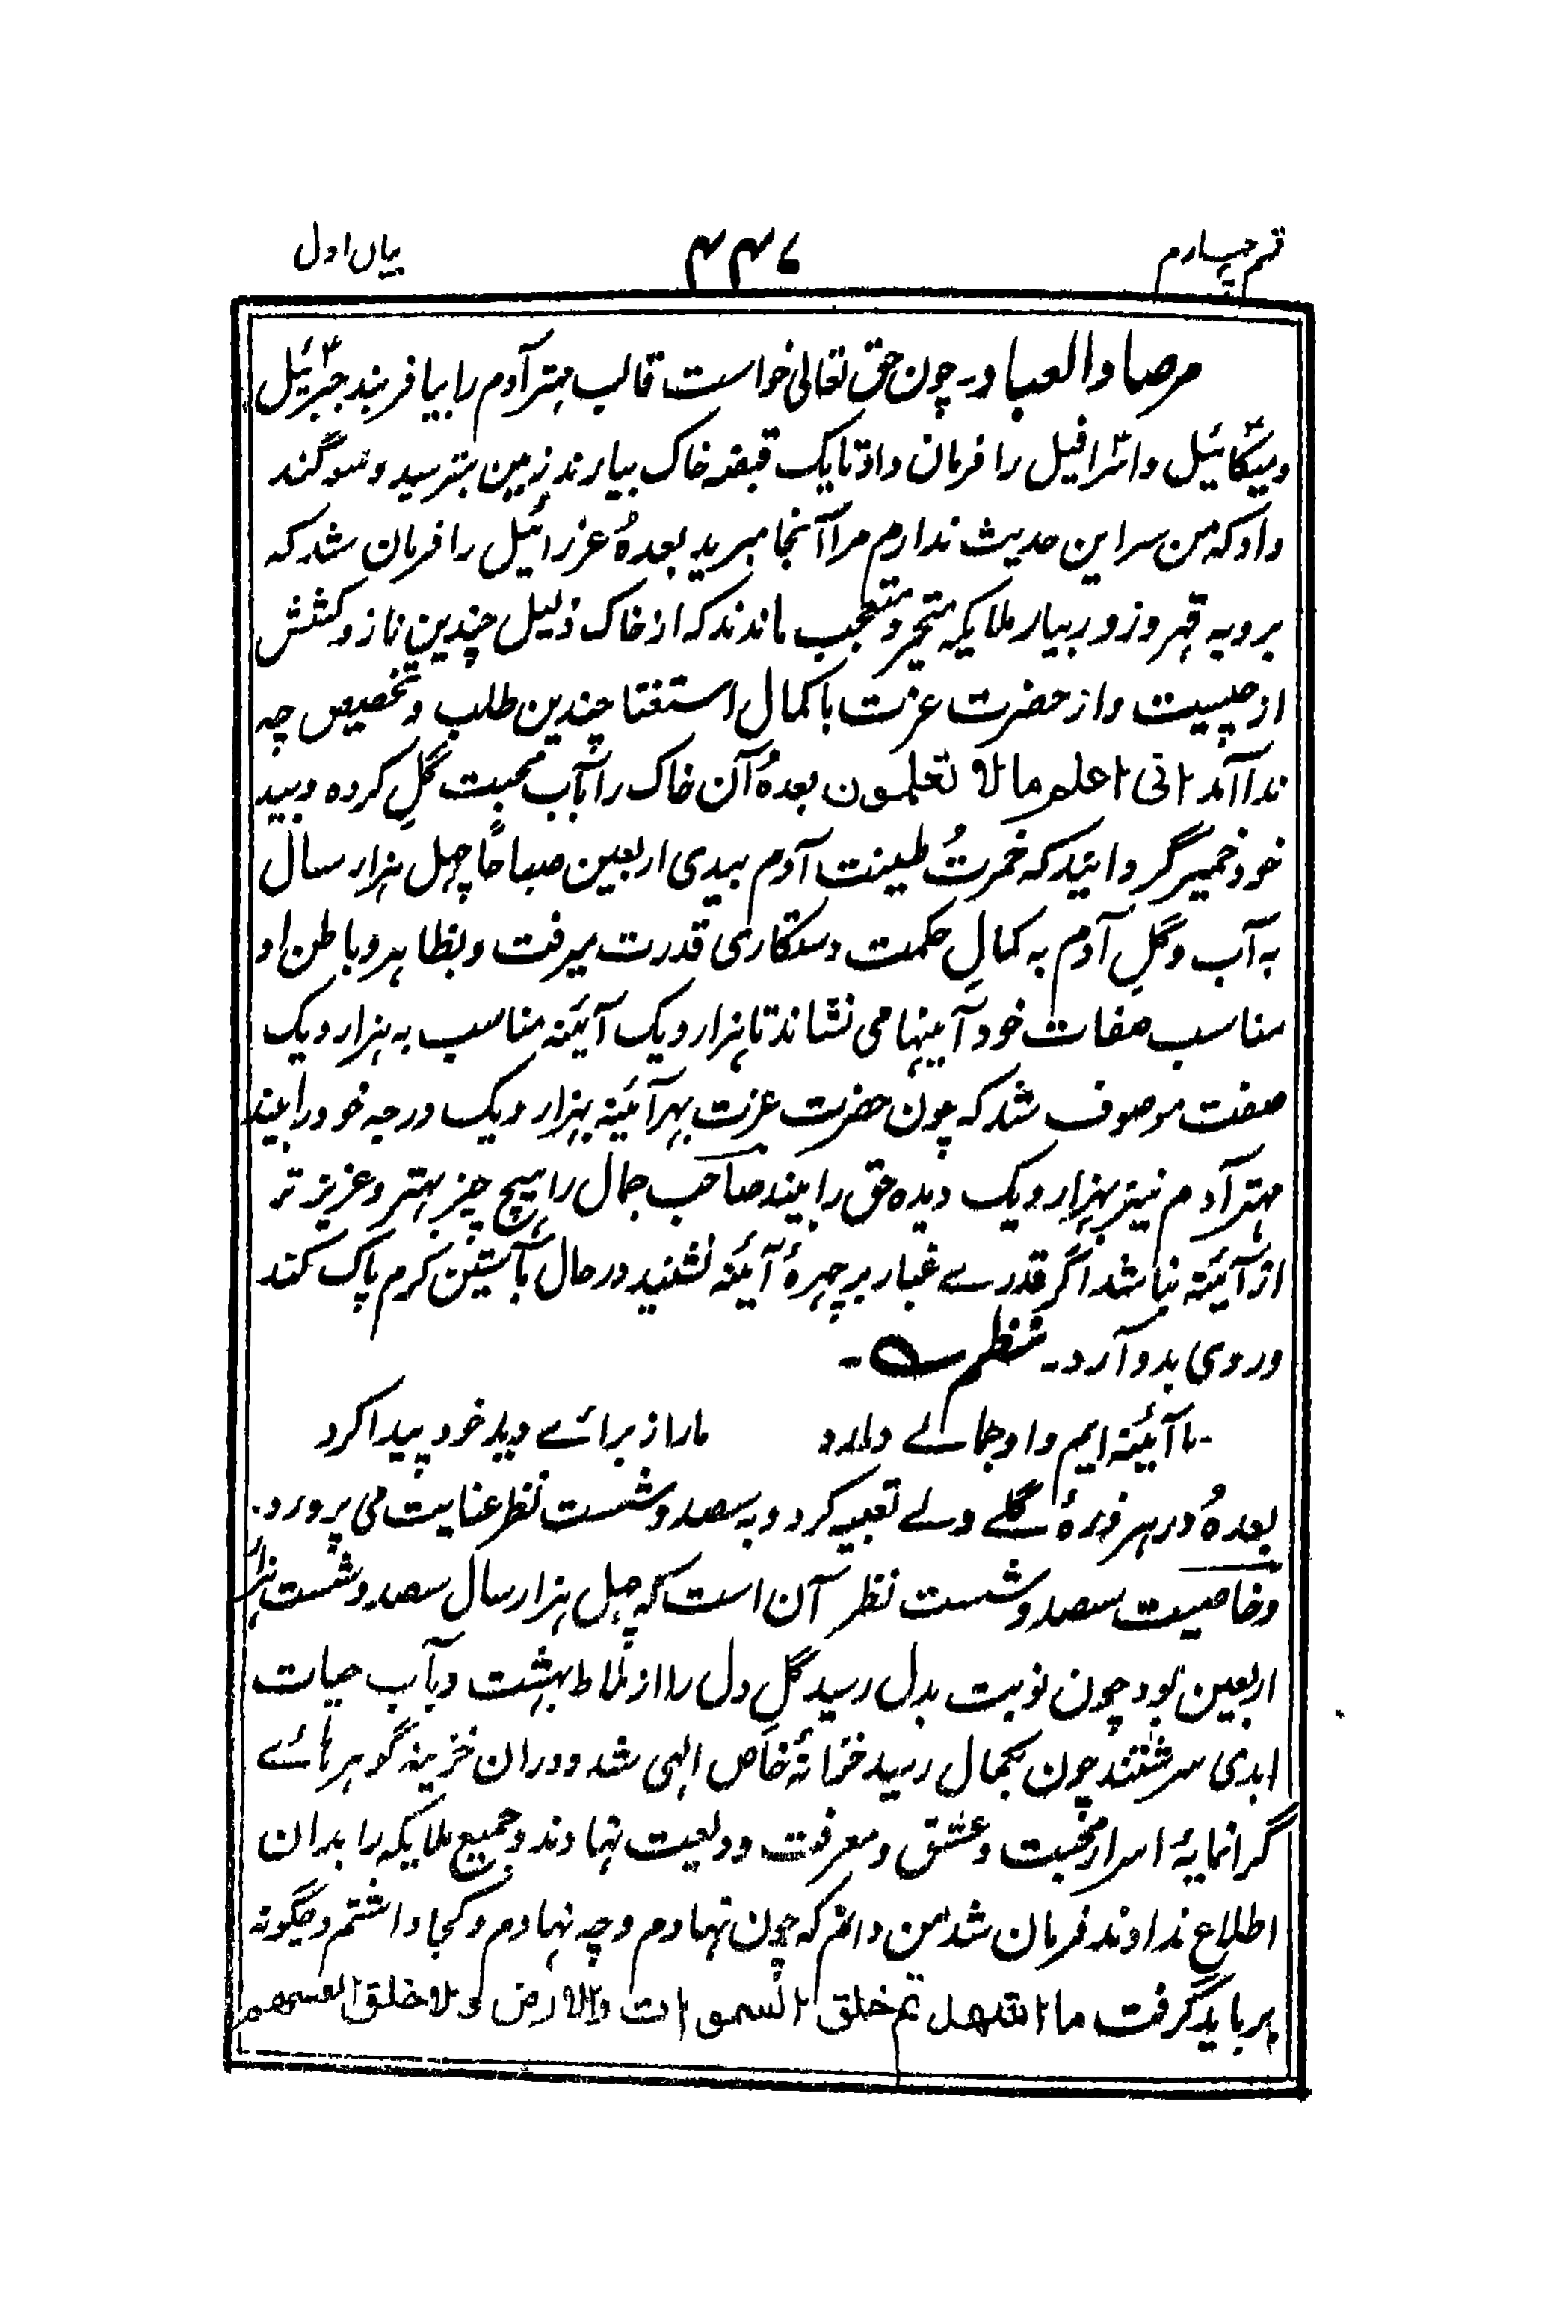 قسم چہارم
۴۴۷
بیان اول
مرصاد العباد۔ چون حق تعالیٰ خواست قالب مہتر آدم را بیافریند جبرئیل
ومیکائیل واسرافیل را فرمان داد تا یک قبضہ خاک بیارند زمین بترسید وسوگند
داد کہ من سر این حدیث ندارم مرا آنجا مبرید بعدہُ عزرائیل را فرمان شد کہ
برو بہ قہر وزور بیار ملایکہ متحیر ومتعجب ماندند کہ از خاک ذلیل چندین ناز وکشش
از چیست واز حضرت عزت با کمال استغنا چندین طلب وتخصیص چہ
ندا آمد انی اعلم ما لا تعلمون بعدہُ آن خاک را بآب محبت گلِ کردہ وبید
خود خمیر گردانید کہ خمرتُ طینت آدم بیدی اربعین صباحًا چہل ہزار سال
بہ آب وگلِ آدم بہ کمالِ حکمت دستکاری قدرت میرفت وبظاہر وباطن او
مناسب صفات خود آینہا می نشاند تا ہزار ویک آئینہ مناسب بہ ہزار ویک
صفت موصوف شد کہ چون حضرت عزت بہر آئینہ بہزار ویک درجہ خود را بیند
مہتر آدم نیز بہزار ویک دیدہ حق را بیند صاحب جمال را ہیچ چیز بہتر وعزیز تر
از آئینہ نباشد اگر قدرے غبار بر چہرۂ آئینہ نشیند در حال بآستین کرم پاک کند
وروی بدو آرد۔ نظم ۔
ما آئینہ ایم واو جمالے دارد ما را از برائے دید خود پیدا کرد
بعدہُ در ہر ذرۂ گلے دلے تعبیہ کرد وبہ سصد وشست نظر عنایت می پرورد۔
وخاصیت سصد وشست نظر آن است کہ چہل ہزار سال سصد وشست ہزار
اربعین بود چون نوبت بدل رسید گلِ دل را از ملاط بہشت وبآب حیات
ابدی سرشتند چون بکمال رسید خزانۂ خاص الہی شد ودران خزینہ گوہرہائے
گرانمایۂ اسرار محبت وعشق ومعرفت ودیعت نہادند وجمیع ملایکہ را بدان
اطلاع ندادند فرمان شد من دانم کہ چون نہادم وچہ نہادم وکجا داشتم وچگونہ
بر باید گرفت ما اشهدتهم خلق السموات والارض ولا خلق انفسهم